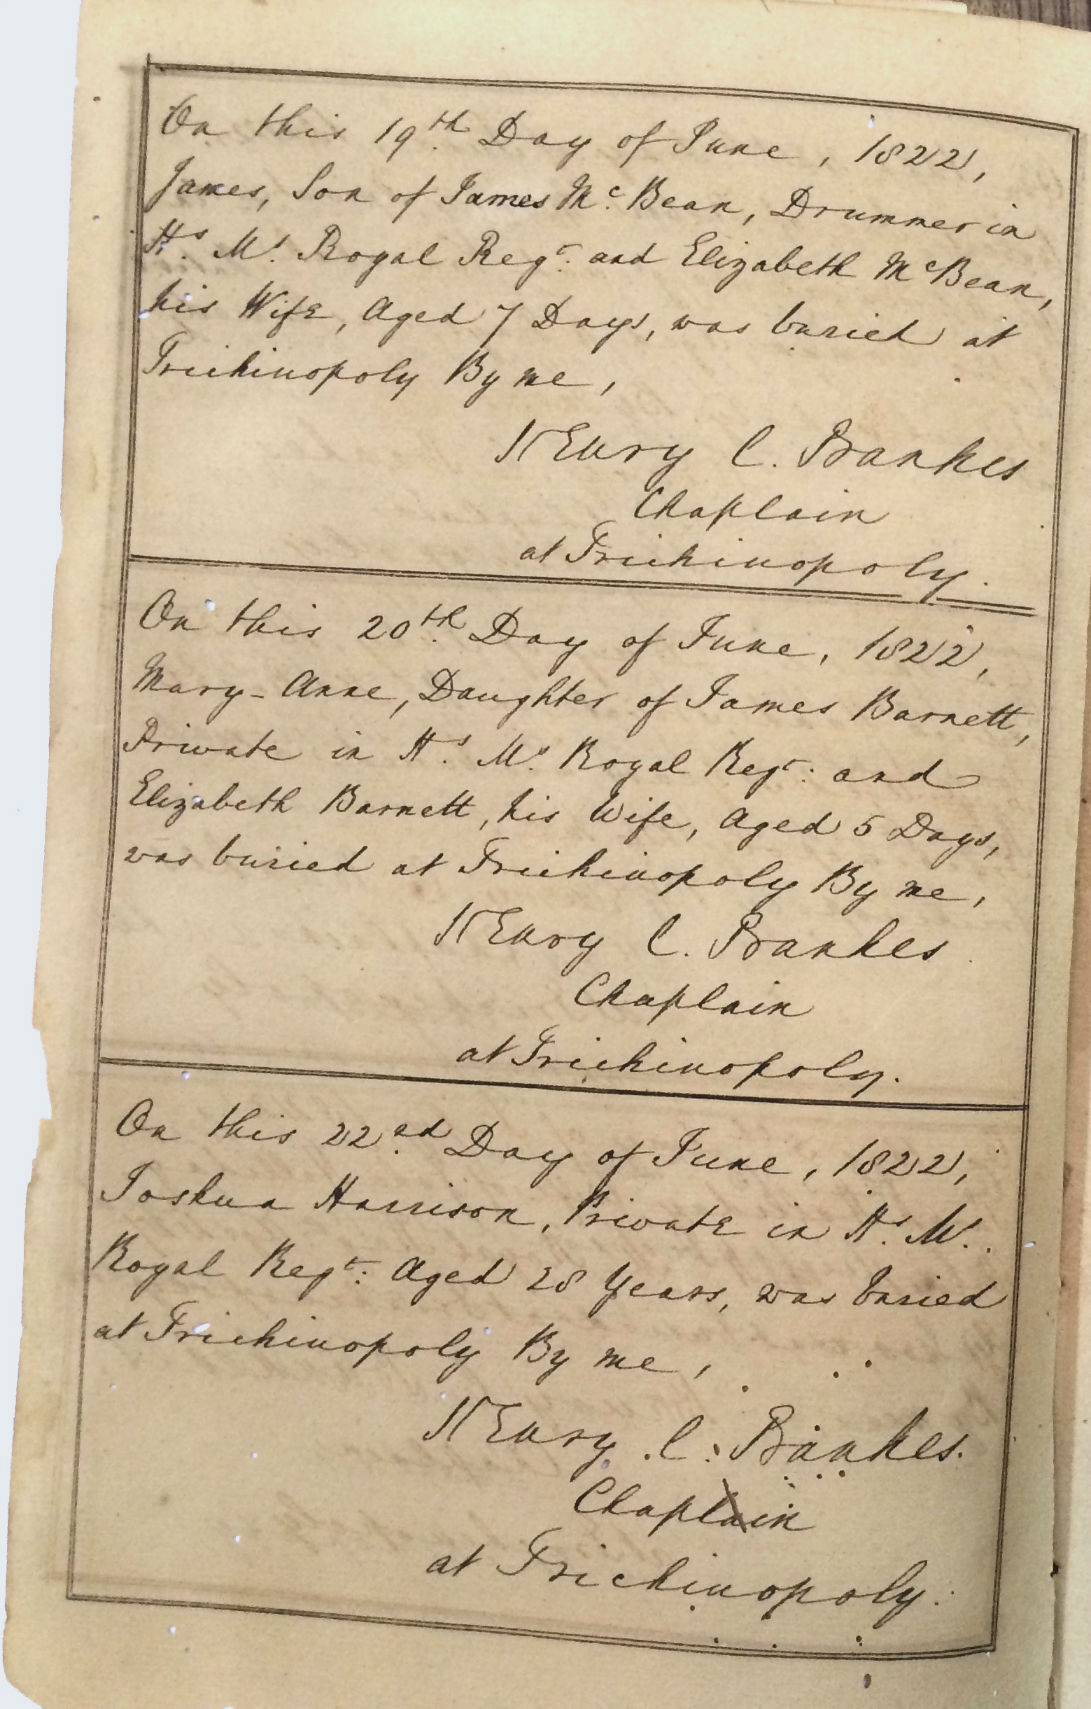 On this 19th Day of June, 1822,
James, Son of James McBean, Drummer in
Hs. Ms. Royal Regt. and Elizabeth McBean,
his Wife, Aged 7 Days, was buried at
Trichinopoly By me,
Henry C. Bankes
Chaplain
at Trichinopoly.
On this 20th Day of June, 1822,
Mary-Anne, Daughter of James Barnett,
Private in Hs. Ms. Royal Regt: and
Elizabeth Barnett, his Wife, Aged 5 Days,
was buried at Trichinopoly By me,
Henry C. Bankes
Chaplain
at Trichinopoly.
On this 22nd Day of June, 1822,
Joshua Harrison, Private in Hs. Ms.
Royal Regt: Aged 28 Years, was buried
at Trichinopoly By me,
Henry C. Bankes.
Chaplain
at Trichinopoly.